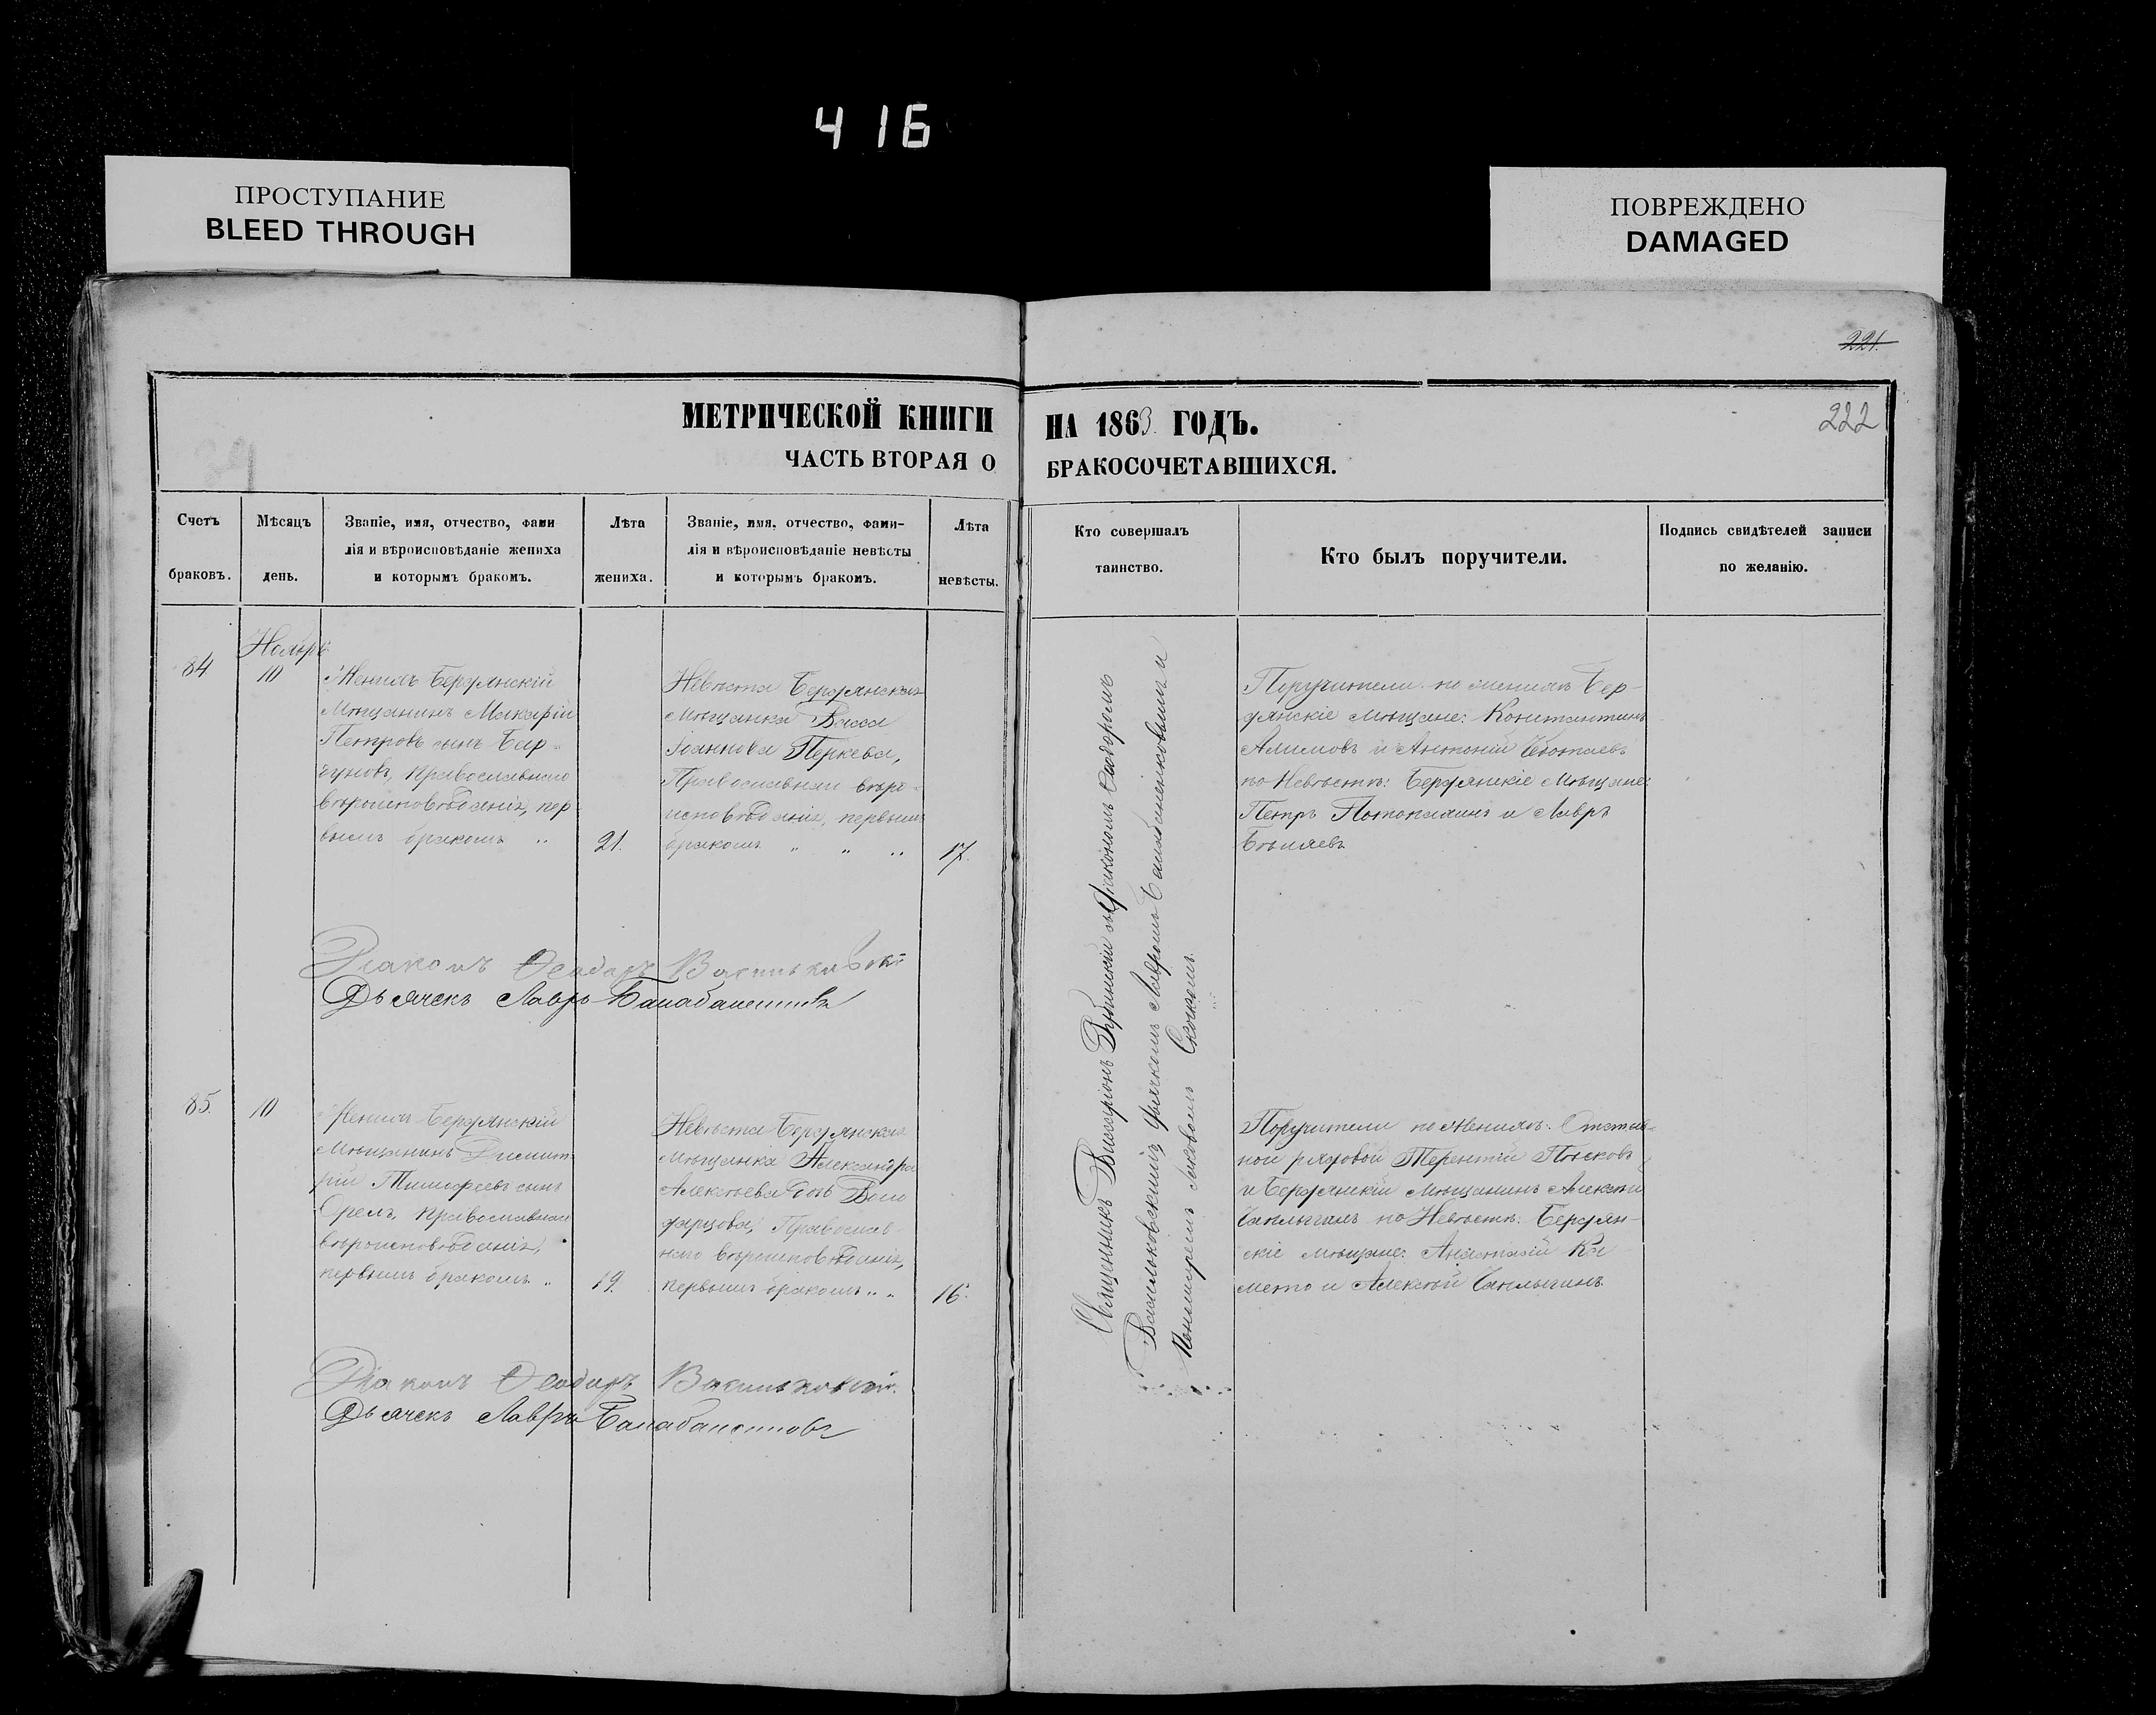 416
ПРОСТУПАНИЕ
BLEED THROUGH
ПОВРЕЖДЕНО
DAMAGED
221.
222
МЕТРИЧЕСКОЙ КНИГИ НА 1863 ГОДЪ.
ЧАСТЬ ВТОРАЯ О БРАКОСОЧЕТАВШИХСЯ.
Счетъ
браковъ.
Мѣсяцъ
день.
Званіе, имя, отчество, фами
лія и вѣроисповѣданіе жениха
и которымъ бракомъ.
Лѣта
жениха.
Званіе, имя, отчество, фами-
лія и вѣроисповѣданіе невѣсты
и которымъ бракомъ.
Лѣта
невѣсты.
Кто совершалъ
таинство.
Кто былъ поручители.
Подпись свидѣтелей записи
по желанію.
84
Ноябрь
10
Женихъ Бердянскій
Мѣщанинъ Макарій
Петровъ сынъ
православнаго
вѣроисповѣданія, пер
вымъ бракомъ „
21.
Невѣста Бердянская
Мѣщанка Васса
Іоаннова Перкева,
Православнаго вѣро-
исповѣданія, первымъ
бракомъ „ „ „
17.
Поручители по женихѣ Бер-
дянскіе Мѣщане: Константинъ
Алимовъ и Антоній
по Невѣстѣ: Бердянскіе Мѣщане:
Петръ и Лавръ
Бѣляевъ
Діаконъ Ѳеодоръ Васильковскій
Дьячекъ Лавръ Балабаненковъ
Священникъ Виссаріонъ съ Діакономъ Ѳеодоромъ
Васильковскимъ, дьячкомъ Лавромъ Балабаненковымъ и
Пономаремъ
85.
10
Женихъ Бердянскій
Мѣщанинъ Димит-
рій Тимофеевъ сынъ
Орелъ, православнаго
вѣроисповѣданія,
первымъ бракомъ „
19.
Невѣста Бердянская
Мѣщанка Александра
Алексѣева дочь
Православ-
наго вѣроисповѣданія,
первымъ бракомъ „ „
16.
Поручители по Женихѣ: Отстав-
ной рядовой Терентій Пысковъ
и Бердянскій Мѣщанинъ Алексѣй
Чаплыгинъ по Невѣстѣ: Бердян-
скіе Мѣщане: Анастасій
и Алексѣй Чаплыгинъ.
Діаконъ Ѳеодоръ Васильковскій.
Дьячекъ Лавръ Балабаненковъ